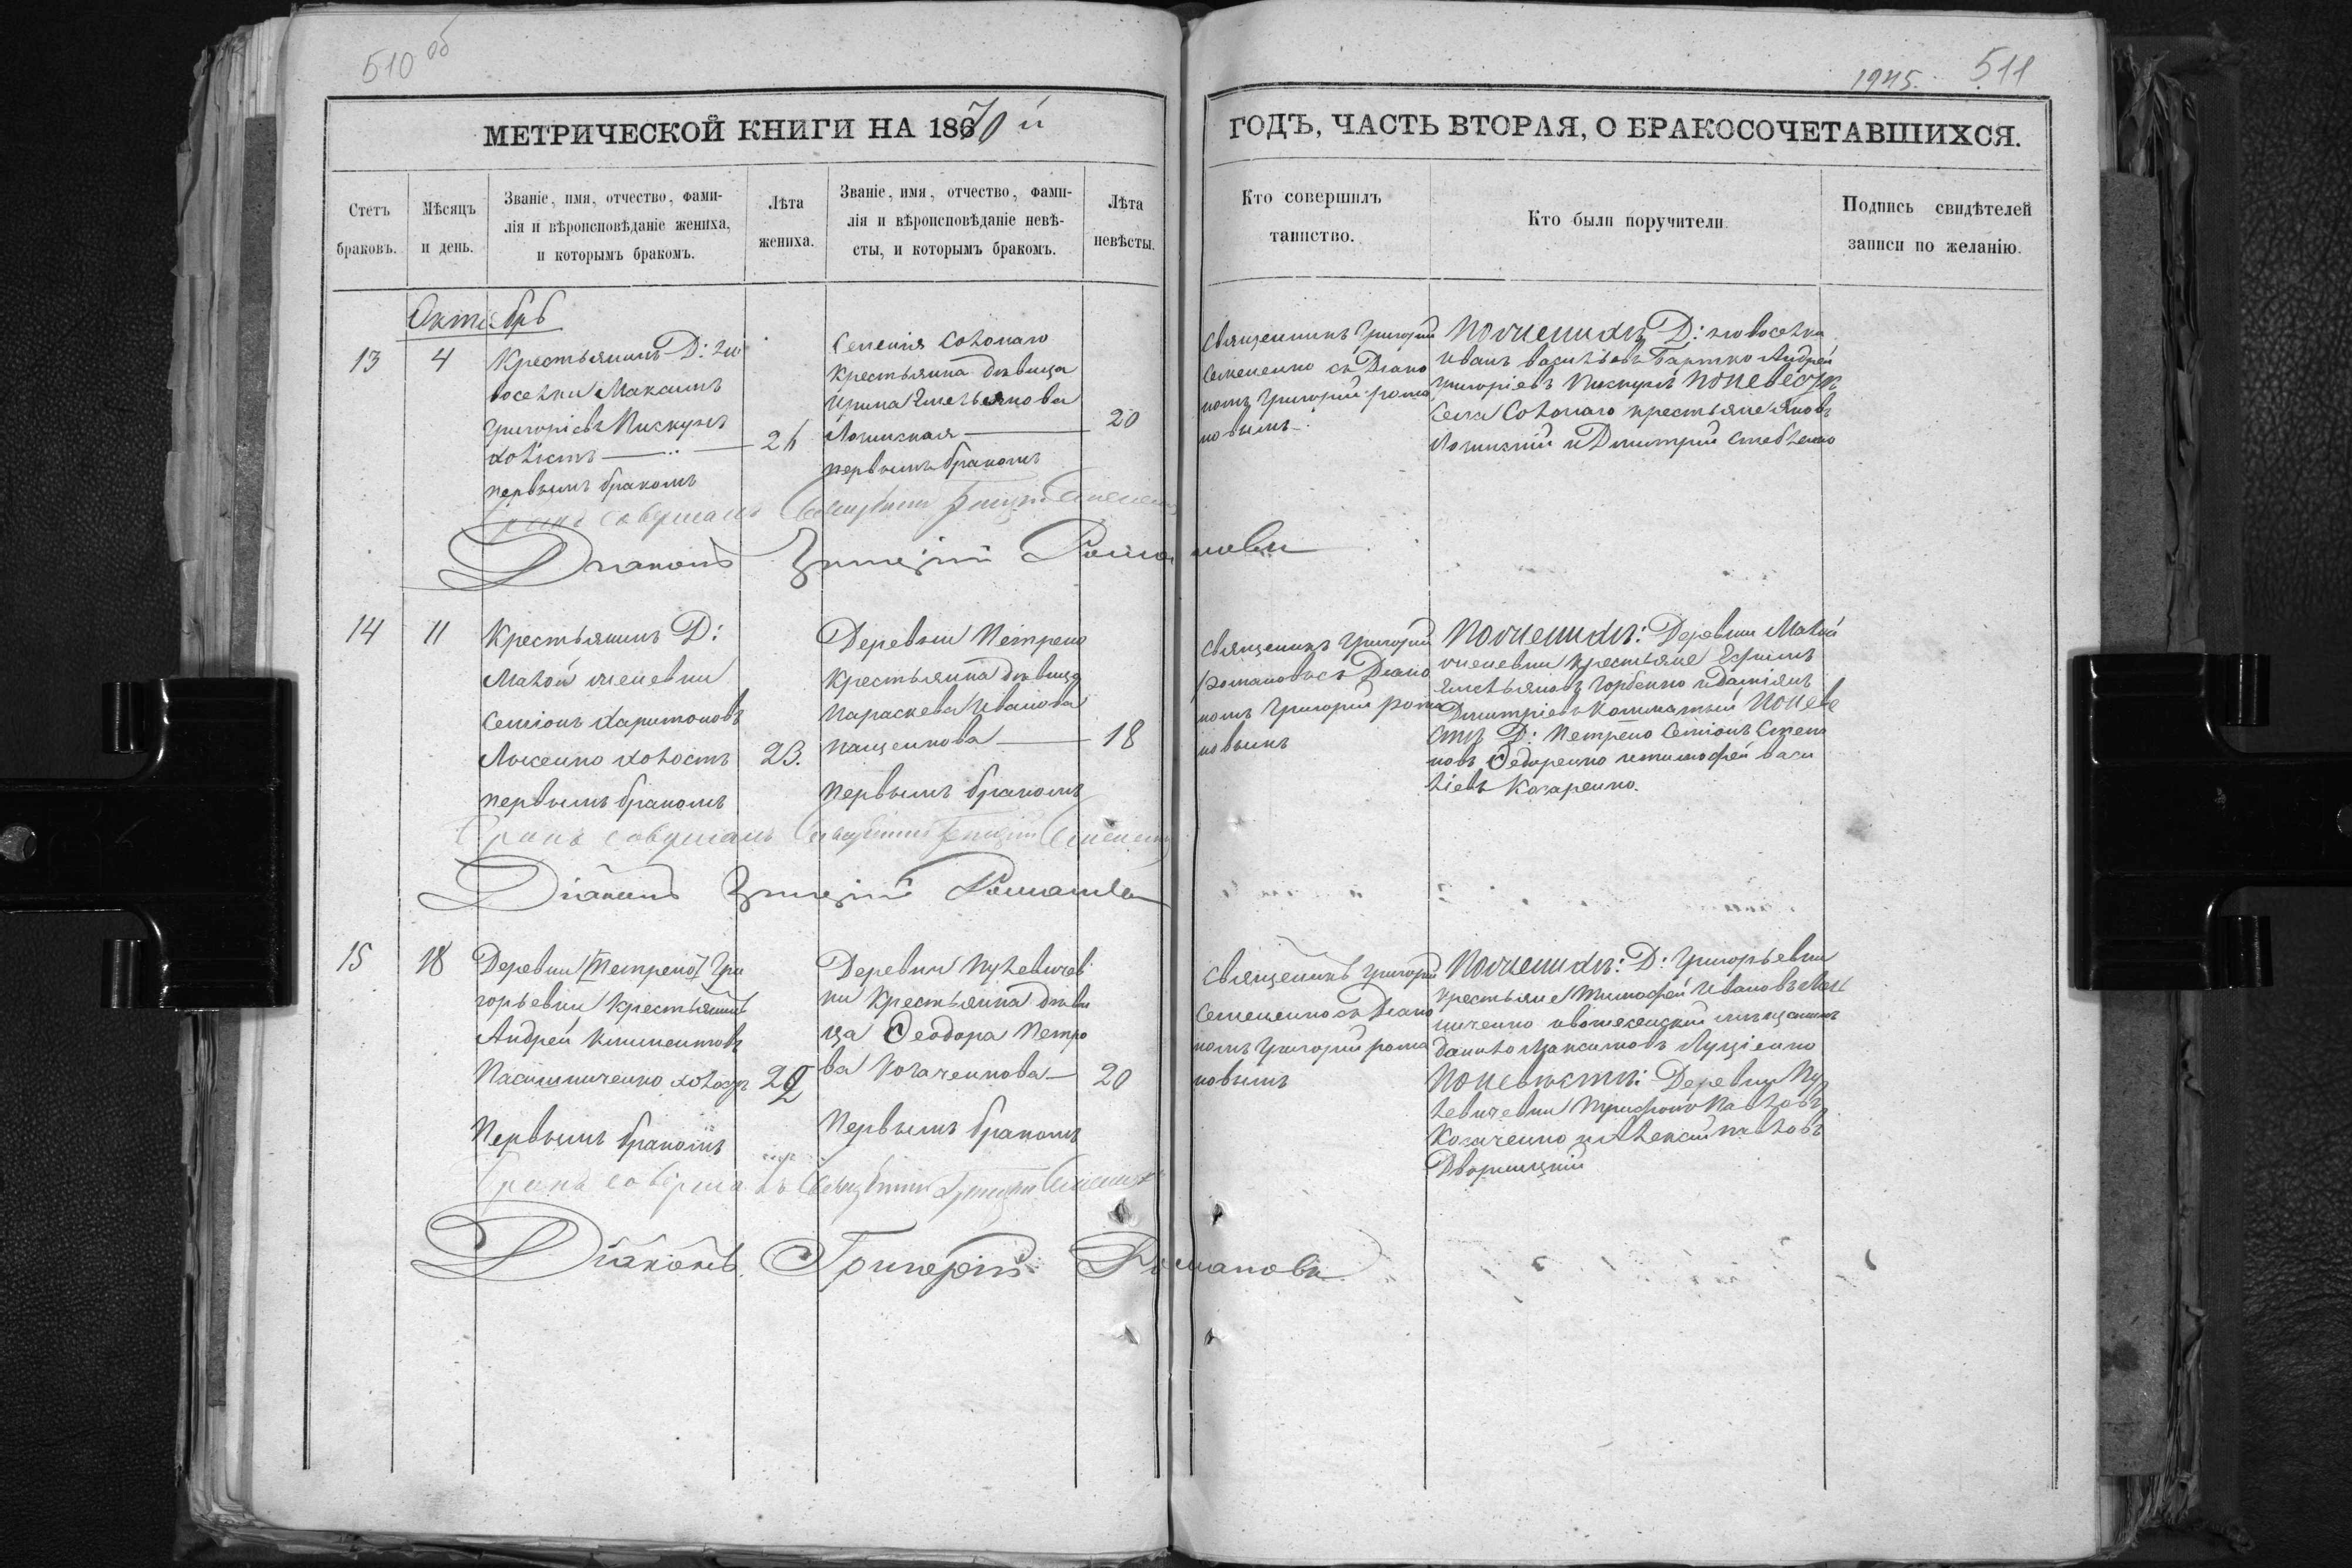 510 об
1945.
511
МЕТРИЧЕСКОЙ КНИГИ НА 1870 й
ГОДЪ, ЧАСТЬ ВТОРАЯ, О БРАКОСОЧЕТАВШИХСЯ.
Счетъ
браковъ.
Мѣсяцъ
и день.
Званіе, имя, отчество, фами-
лія и вѣроисповѣданіе жениха,
и которымъ бракомъ.
Лѣта
жениха.
Званіе, имя, отчество, фами-
лія и вѣроисповѣданіе невѣ-
сты, и которымъ бракомъ.
Лѣта
невѣсты.
Кто совершилъ
таинство.
Кто были поручители.
Подпись свидѣтелей
записи по желанію.
Октябрь
13
4
Крестьянинъ Д:
Максимъ
Григоріевъ Пискунъ
холостъ
первымъ бракомъ
Солонаго
крестьянка дѣвица
Ирина
20
первымъ бракомъ
Священникъ Григорій
Семененко съ Діако
номъ Григорій Рома
новымъ
По женихѣ Д:
Иванъ Андрей
Григоріевъ Пискунъ по невестѣ
Села Солонаго крестьяне Яковъ
и Димитрій
Бракъ совершалъ Священникъ Григорій Семененко
Діаконъ Григорій Романовъ
14
11
Крестьянинъ Д:
Малой
Семіонъ Харитоновъ
холостъ
23.
первымъ бракомъ
Деревни Петрено
крестьянка дѣвица
Параскева Иванова
Пащенкова
18
первымъ бракомъ
Священникъ Григорій
съ Діако
номъ Григорій Рома
новымъ
По женихѣ: Деревни Малой
крестьяне Ефимъ
Емельяновъ Горбенко и Даміянъ
Димитріевъ по неве
стѣ Д: Петрено Семіонъ Степа
новъ Федоренко и Тимофей Васи
ліевъ Козаренко.
Бракъ совершалъ Священникъ Григорій Семененко
Діаконъ Григорій Романовъ
15
18
Деревни Петрено Гри
горьевки крестьянинъ
Андрей Климентовъ
холостъ
22
Первымъ бракомъ
Деревни Пулевичев
ки крестьянка дѣви
ца Феодора Петро
ва Козаченкова
20
Первымъ бракомъ
Священникъ Григорій
Семененко съ Діако
номъ Григорій Рома
новымъ
По женихѣ: Д: Григорьевки
крестьяне Тимофей Ивановъ
мѣщанинъ
Данило Максимовъ Луценко
По невѣстѣ: Деревни Пу
левичевки Трифонъ Павловъ
Козаченко и Алексѣй Павловъ
Дворницкій
Бракъ совершалъ Священникъ Григорій Семененко
Діаконъ Григорій Романовъ